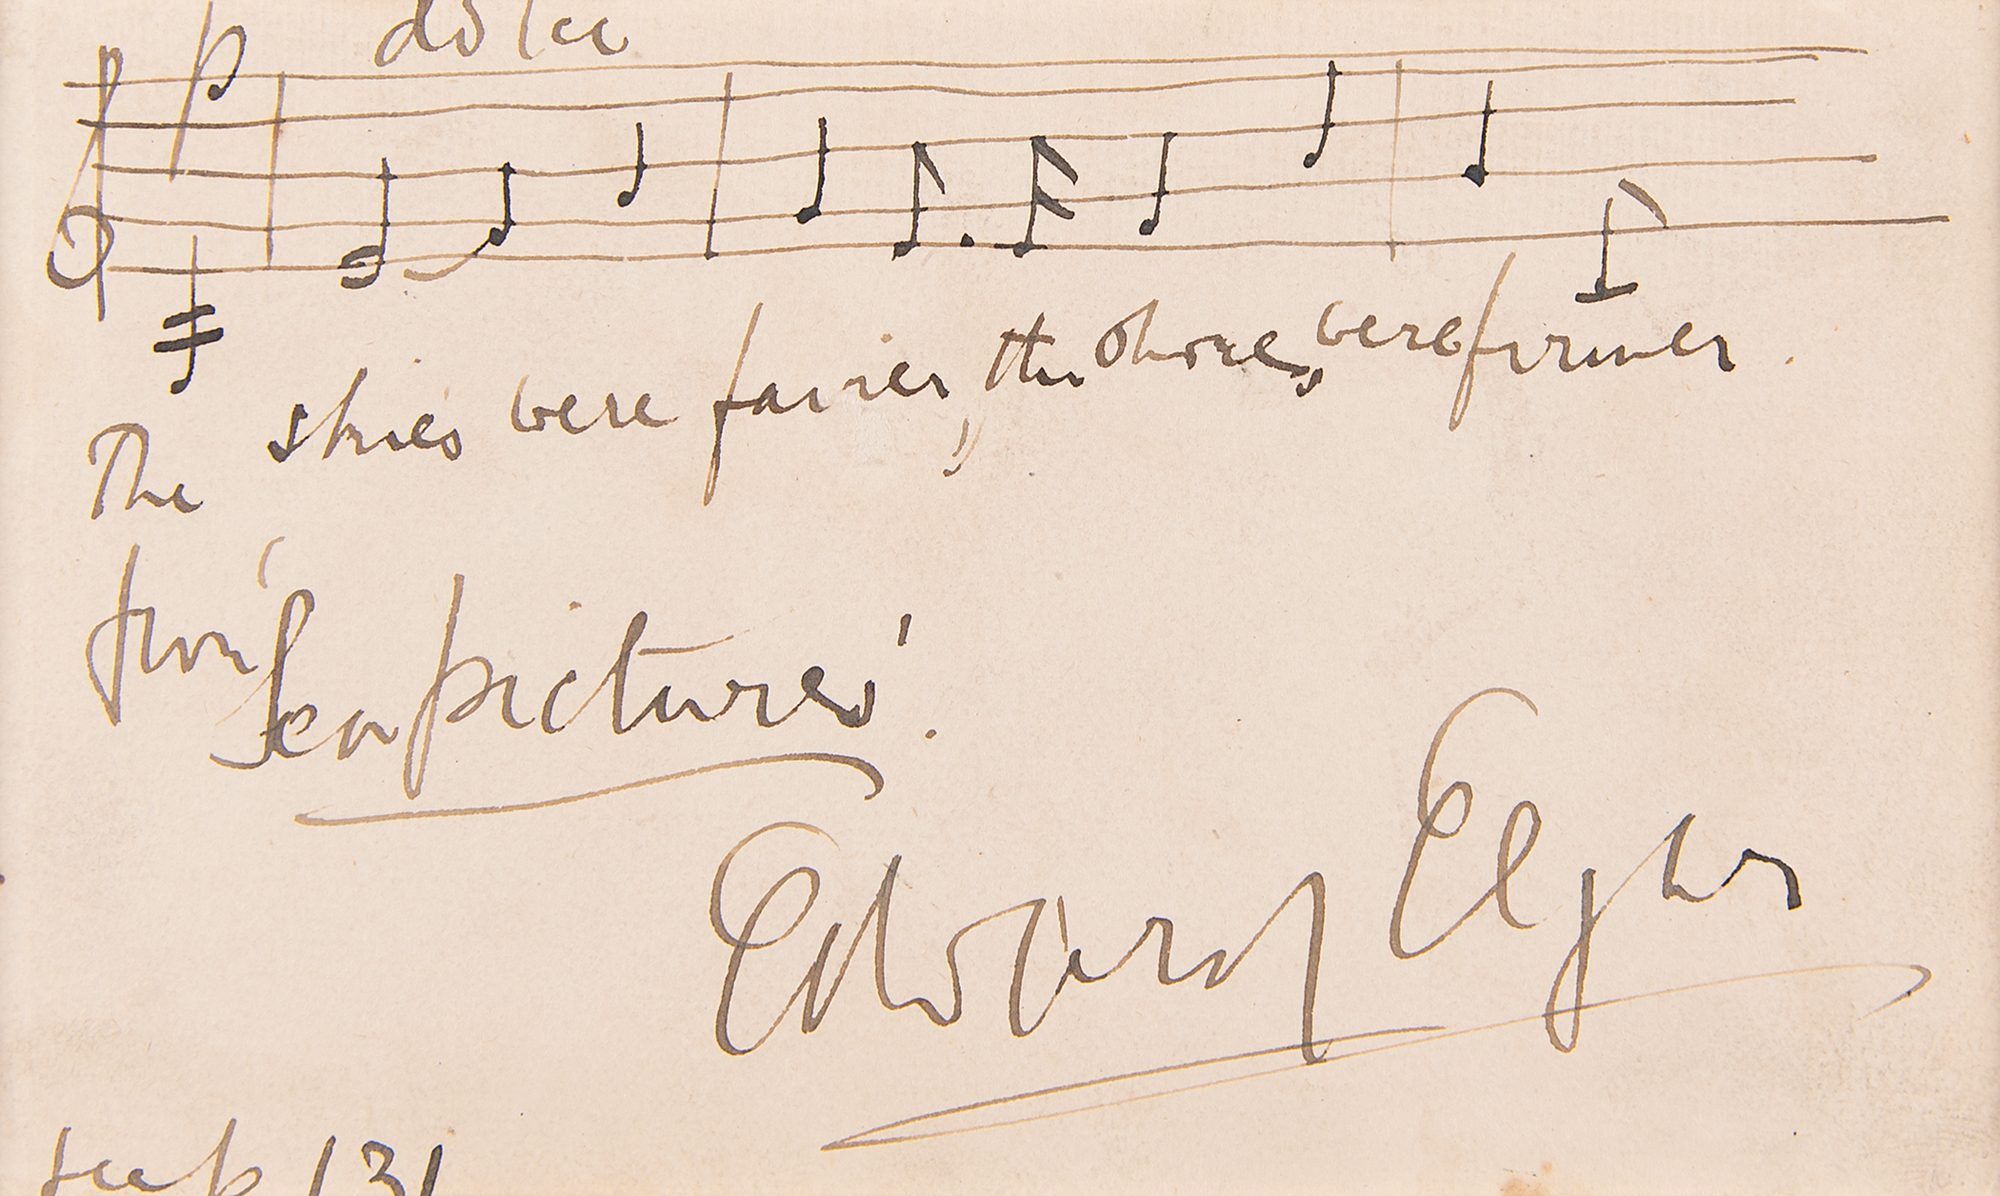 p dolce
The skies were fairer, the shores were firmer.
from 'Sea pictures'.
Edward Elgar